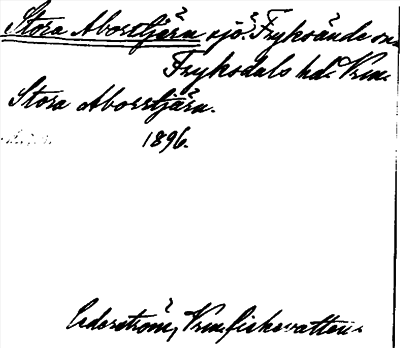 Stora Aborrtjärn sjö. Fryksände sn.
Fryksdals hd. Vrm.
Stora Aborrtjärn.
1896.
Cederström, Vrm fiskevatten